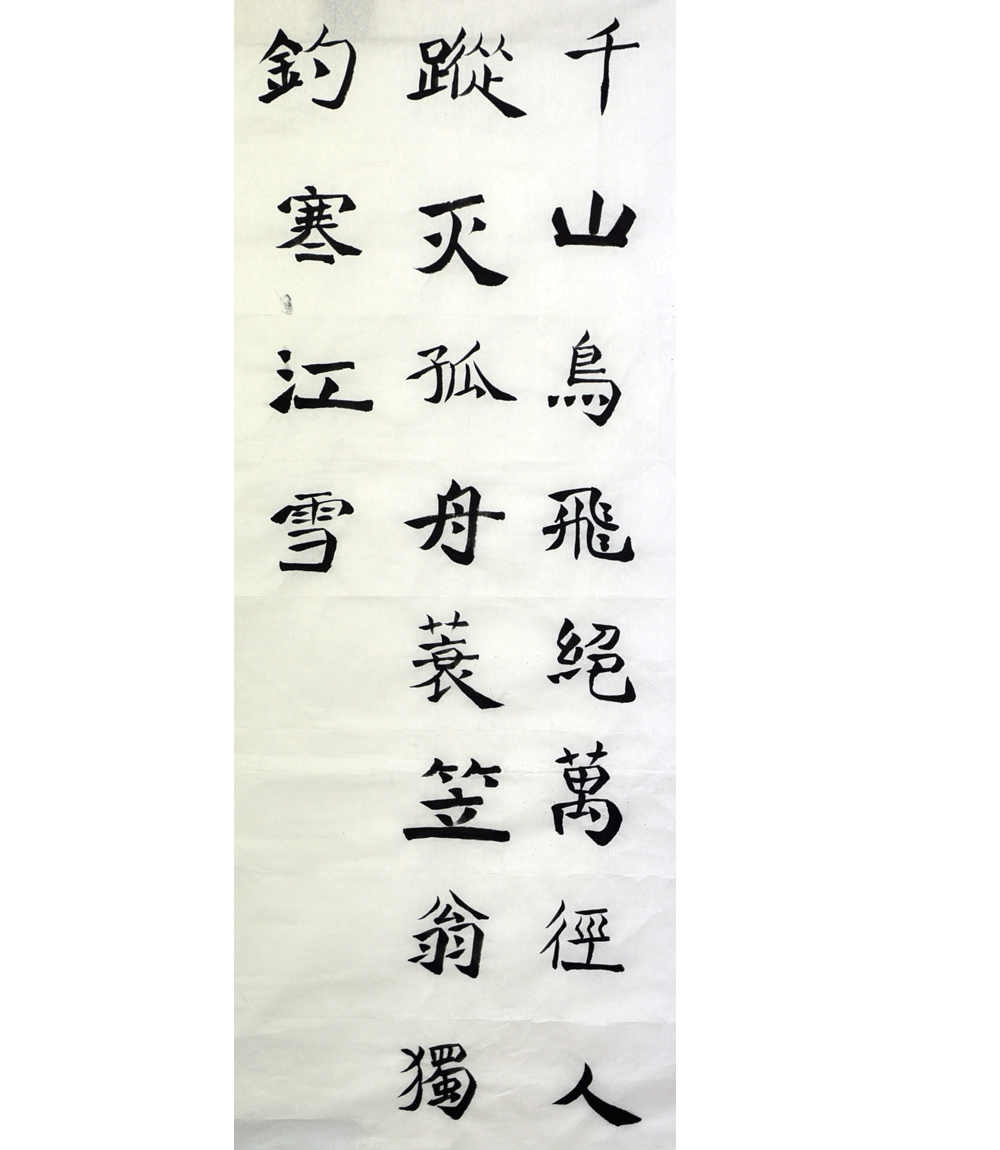 千山鳥飛絕萬徑人
蹤灭孤舟蓑笠翁獨
釣寒江雪